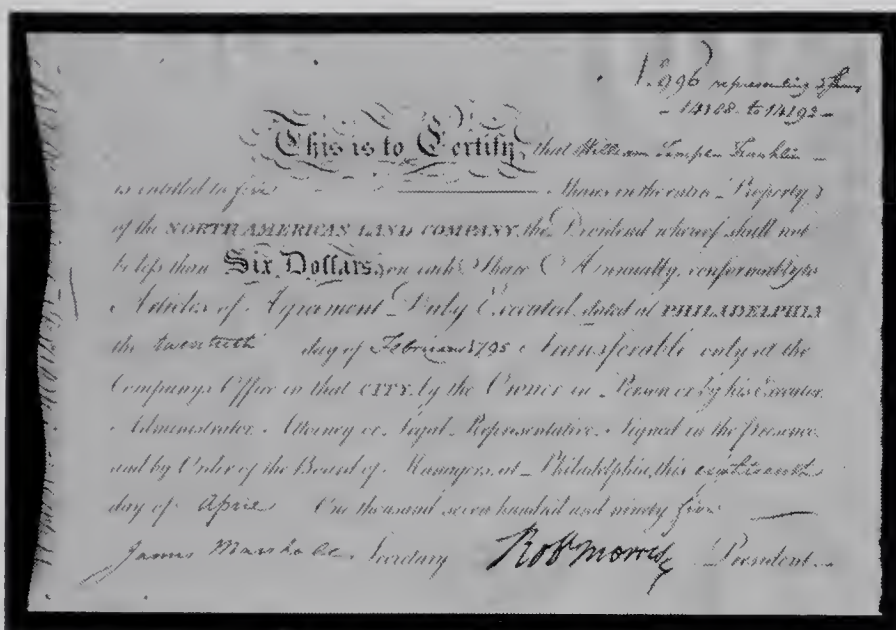 No. 996 representing 5 Shares
– 14188 to 14192 –
This is to Certify, that William Temple Franklin –
is entitled to five Shares in the entire Property
of the NORTH AMERICAN LAND COMPANY, the Dividend whereof shall not
be less than Six Dollars, on each Share Annually, conformably to
Articles of Agreement Duly Executed, dated at PHILADELPHIA
the twentieth day of February 1795 Transferable only at the
Company's Office in that CITY, by the Owner in Person or by his Executor,
Administrator, Attorney or Legal Representative. Signed in the presence,
and by Order of the Board of Managers, at Philadelphia, this eighteenth
day of April One thousand seven hundred and ninety five
James Marshall Secretary Rob Morris President